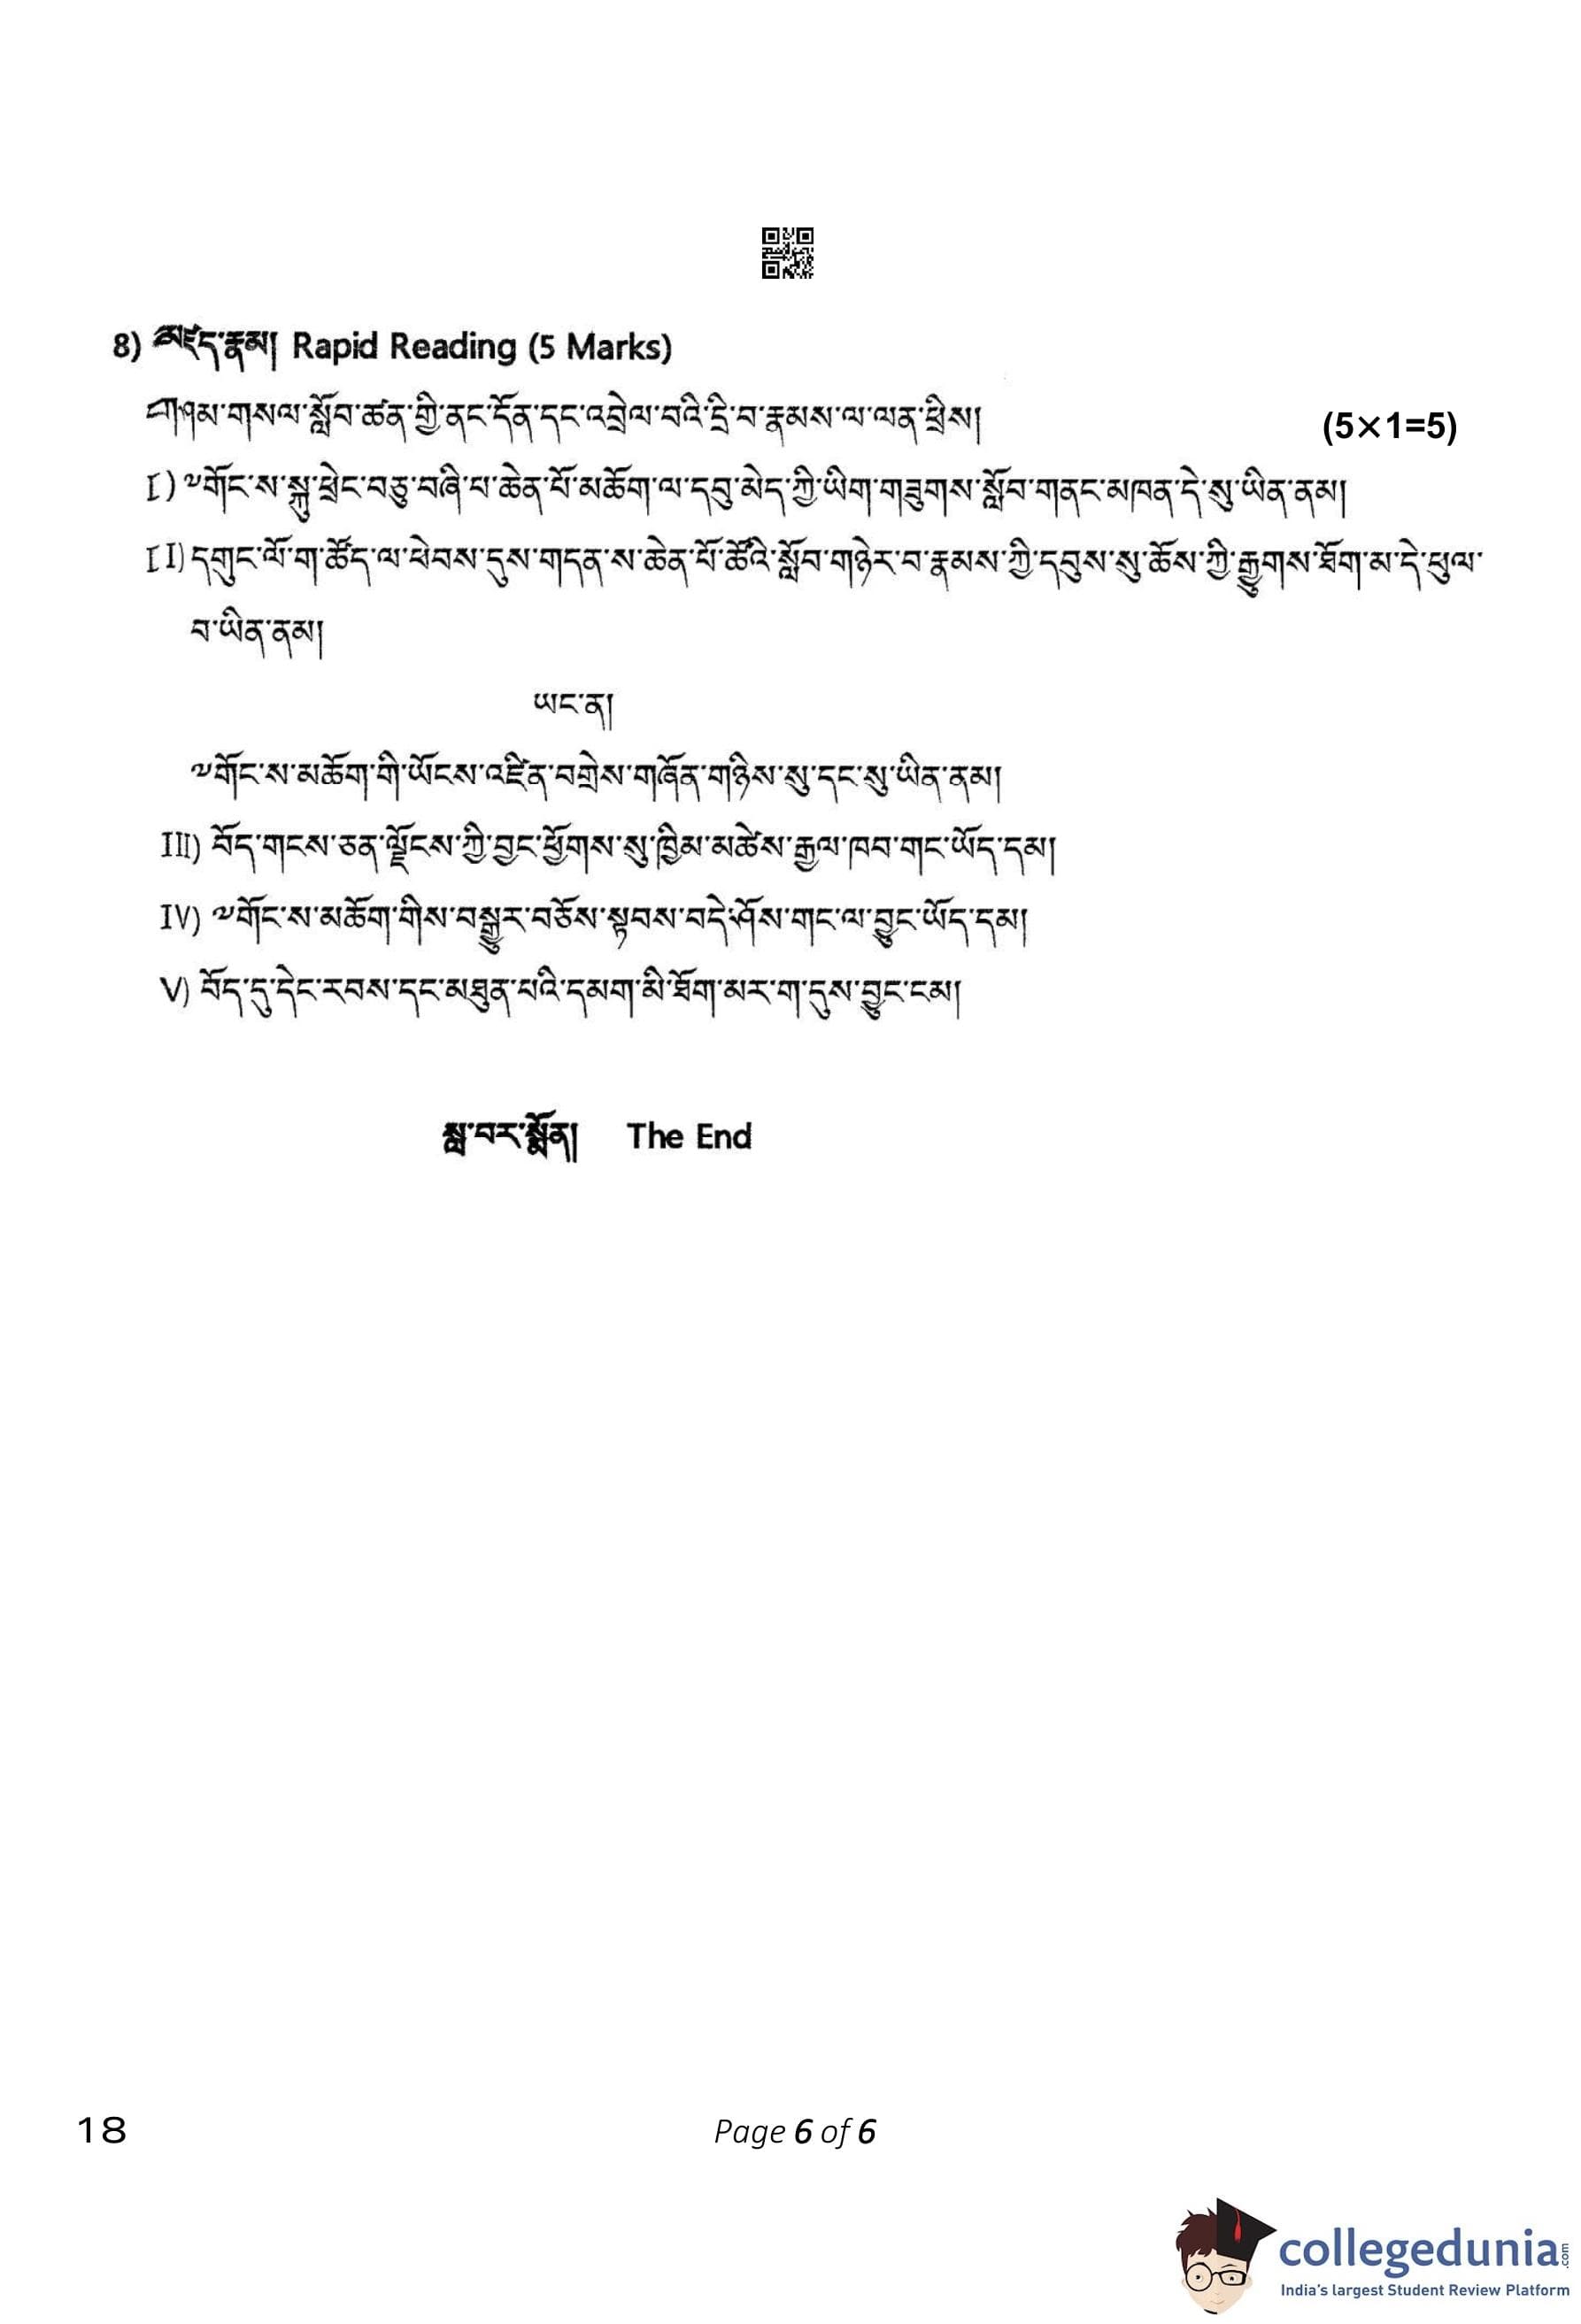 8) མཛད་རྣམ། Rapid Reading (5 Marks)
གཤམ་གསལ་སློབ་ཚན་གྱི་ནང་དོན་དང་འབྲེལ་བའི་དྲི་བ་རྣམས་ལ་ལན་ཕྲིས། (5×1=5)
I) ༧གོང་ས་སྐུ་ཕྲེང་བཅུ་བཞི་པ་ཆེན་པོ་མཆོག་ལ་དབུ་མེད་ཀྱི་ཡིག་གཟུགས་སློབ་གནང་མཁན་དེ་སུ་ཡིན་ནམ།
II) དགུང་ལོ་ག་ཚོད་ལ་ཕེབས་དུས་གདན་ས་ཆེན་པོ་ཚོའི་སློབ་གཉེར་བ་རྣམས་ཀྱི་དབུས་སུ་ཆོས་ཀྱི་རྒྱུགས་ཐོག་མ་དེ་ཕུལ་
བ་ཡིན་ནམ།
ཡང་ན།
༧གོང་ས་མཆོག་གི་ཡོངས་འཛིན་བགྲེས་གཞོན་གཉིས་སུ་དང་སུ་ཡིན་ནམ།
III) བོད་གངས་ཅན་ལྗོངས་ཀྱི་བྱང་ཕྱོགས་སུ་ཁྱིམ་མཚེས་རྒྱལ་ཁབ་གང་ཡོད་དམ།
IV) ༧གོང་ས་མཆོག་གིས་བསྒྱུར་བཅོས་སྟབས་བདེ་ཤོས་གང་ལ་བྱུང་ཡོད་དམ།
V) བོད་དུ་དེང་རབས་དང་མཐུན་པའི་དམག་མི་ཐོག་མར་ག་དུས་བྱུང་ངམ།
སླ་བར་སྨོན། The End
18 Page 6 of 6
collegedunia.com
India's largest Student Review Platform